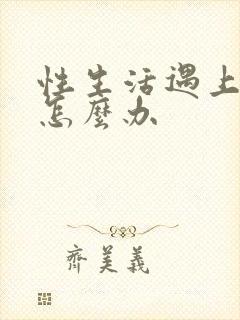 性生活遇上
怎麼办
齊美義